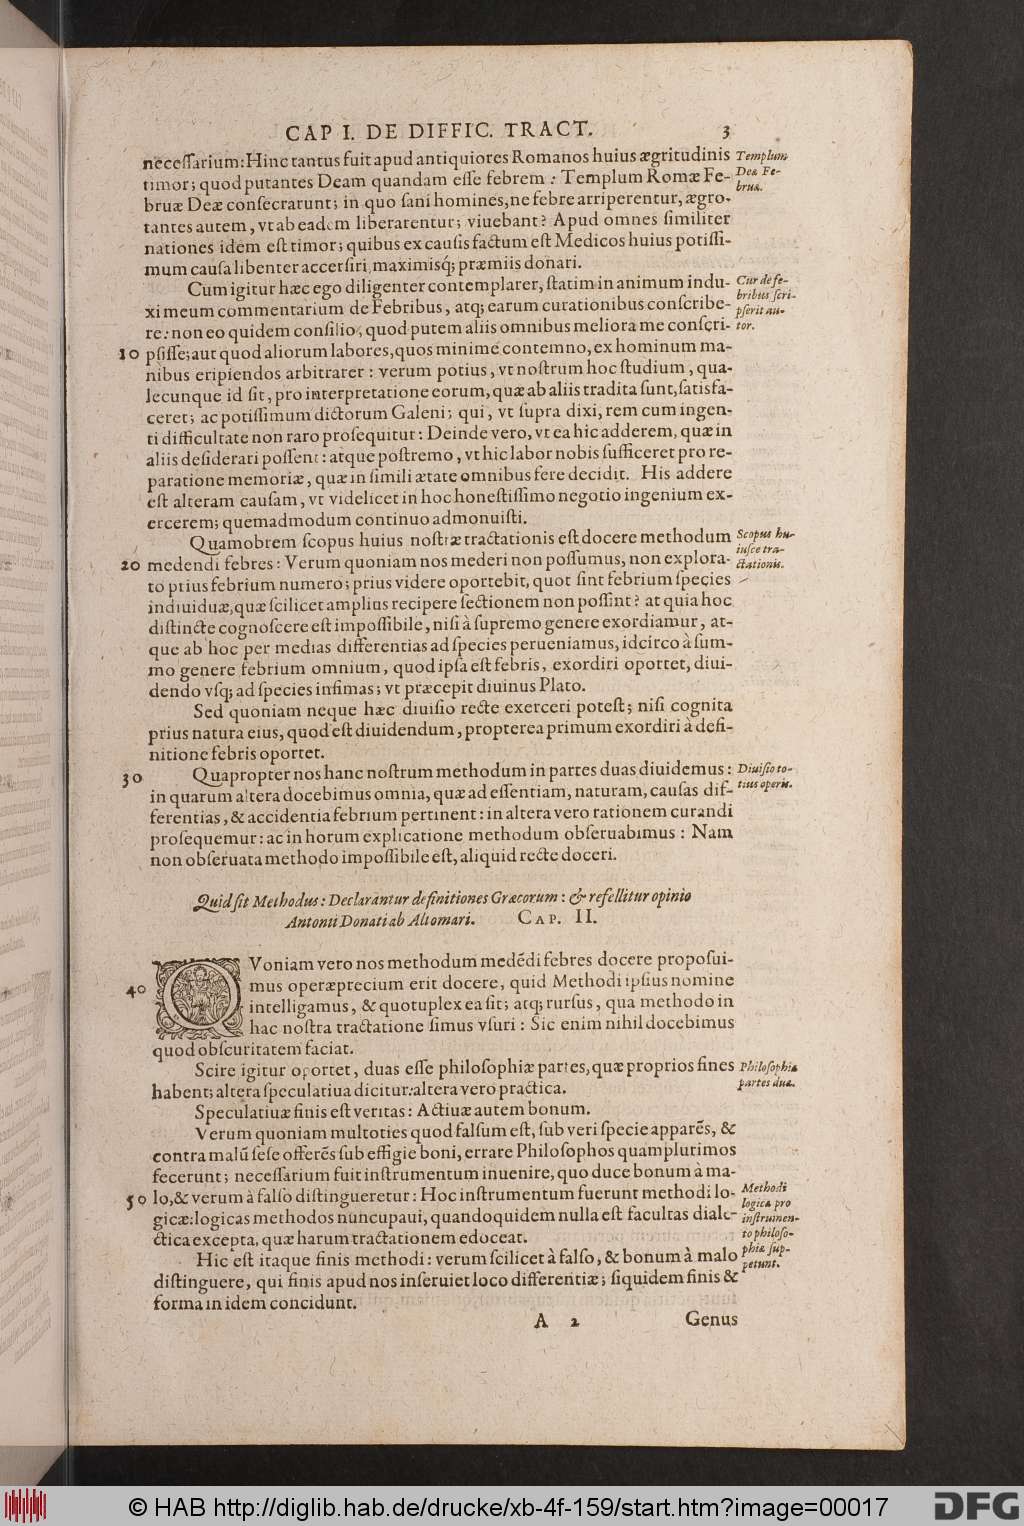 CAP I. DE DIFFIC. TRACT. 3
neceſſarium: Hinc tantus fuit apud antiquiores Romanos huius ægritudinis
timor; quod putantes Deam quandam eſſe febrem: Templum Romæ Fe-
bruæ Deæ conſecrarunt; in quo ſani homines, ne febre arriperentur, ægro-
tantes autem, vt ab eadem liberarentur; viuebant? Apud omnes ſimiliter
nationes idem eſt timor; quibus ex cauſis factum eſt Medicos huius potiſſi-
mum cauſa libenter accerſiri, maximisq́; præmiis donari.
Templum
Deæ Fe-
bruæ.
Cum igitur hæc ego diligenter contemplarer, ſtatim in animum indu-
xi meum commentarium de Febribus, atq; earum curationibus conſcribe-
re: non eo quidem conſilio, quod putem aliis omnibus meliora me conſcri-
10 pſiſſe; aut quod aliorum labores, quos minimè contemno, ex hominum ma-
nibus eripiendos arbitrarer: verum potius, vt noſtrum hoc ſtudium, qua-
lecunque id ſit, pro interpretatione eorum, quæ ab aliis tradita ſunt, ſatisfa-
ceret; ac potiſſimum dictorum Galeni; qui, vt ſupra dixi, rem cum ingen-
ti difficultate non raro proſequitur: Deinde vero, vt ea hic adderem, quæ in
aliis deſiderari poſſent: atque poſtremo, vt hic labor nobis ſufficeret pro re-
paratione memoriæ, quæ in ſimili ætate omnibus fere decidit. His addere
eſt alteram cauſam, vt videlicet in hoc honeſtiſſimo negotio ingenium ex-
ercerem; quemadmodum continuo admonuiſti.
Cur de fe-
bribus ſcri-
pſerit au-
tor.
Quamobrem ſcopus huius noſtræ tractationis eſt docere methodum
20 medendi febres: Verum quoniam nos mederi non poſſumus, non explora-
to prius febrium numero; prius videre oportebit, quot ſint febrium ſpecies
indiuiduæ, quæ ſcilicet amplius recipere ſectionem non poſſint? at quia hoc
diſtincte cognoſcere eſt impoſſibile, niſi à ſupremo genere exordiamur, at-
que ab hoc per medias differentias ad ſpecies perueniamus, idcirco à ſum-
mo genere febrium omnium, quod ipſa eſt febris, exordiri oportet, diui-
dendo vſq; ad ſpecies infimas; vt præcepit diuinus Plato.
Scopus hu-
iuſce tra-
ctationis.
Sed quoniam neque hæc diuiſio recte exerceri poteſt; niſi cognita
prius natura eius, quod eſt diuidendum, propterea primum exordiri à defi-
nitione febris oportet.
30 Quapropter nos hanc noſtrum methodum in partes duas diuidemus:
in quarum altera docebimus omnia, quæ ad eſſentiam, naturam, cauſas dif-
ferentias, & accidentia febrium pertinent: in altera vero rationem curandi
proſequemur: ac in horum explicatione methodum obſeruabimus: Nam
non obſeruata methodo impoſſibile eſt, aliquid recte doceri.
Diuiſio to-
tius operis.
Quid ſit Methodus: Declarantur definitiones Græcorum: & refellitur opinio
Antonii Donati ab Altomari. CAP. II.
QVoniam vero nos methodum medēdi febres docere propoſui-
40 mus operæprecium erit docere, quid Methodi ipſius nomine
intelligamus, & quotuplex ea ſit; atq; rurſus, qua methodo in
hac noſtra tractatione ſimus vſuri: Sic enim nihil docebimus
quod obſcuritatem faciat.
Scire igitur oportet, duas eſſe philoſophiæ partes, quæ proprios fines
habent; altera ſpeculatiua dicitur: altera vero practica.
Philoſophiæ
partes duæ.
Speculatiuæ finis eſt veritas: Actiuæ autem bonum.
Verum quoniam multoties quod falſum eſt, ſub veri ſpecie apparēs, &
contra malū ſeſe offerēs ſub effigie boni, errare Philoſophos quamplurimos
fecerunt; neceſſarium fuit inſtrumentum inuenire, quo duce bonum à ma-
50 lo, & verum à falſo diſtingueretur: Hoc inſtrumentum fuerunt methodi lo-
gicæ: logicas methodos nuncupaui, quandoquidem nulla eſt facultas diale-
ctica excepta, quæ harum tractationem edoceat.
Methodi
logicæ pro
inſtrumen-
to philoſo-
phiæ ſup-
petunt.
Hic eſt itaque finis methodi: verum ſcilicet à falſo, & bonum à malo
diſtinguere, qui finis apud nos inſeruiet loco differentiæ; ſiquidem finis &
forma in idem concidunt.
A 2 Genus
© HAB http://diglib.hab.de/drucke/xb-4f-159/start.htm?image=00017
DFG